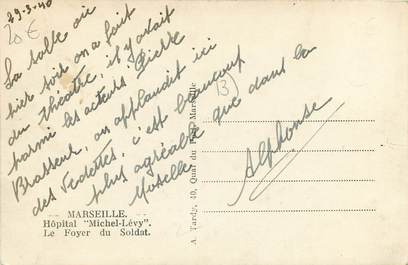 29-3-40
20 €
La salle où
hier soir on a fait
du théatre, il y avait
parmi les acteurs Pierre
Brasseur, on applaudit ici
des Vedettes, c'est beaucoup
plus agréable que dans la
Moselle
Alphonse
B)
MARSEILLE.
Hôpital "Michel-Lévy".
Le Foyer du Soldat.
A. Tardy, 40, Quai du Port, Marseille